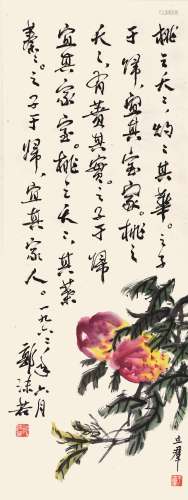 桃之夭〻灼〻其華。之子
于歸宜其室家。桃之
夭〻有蕡其實。之子于歸
宜其家室。桃之夭〻其葉
蓁〻。之子于歸宜其家人。一九六三年六月
郭沫若
立群